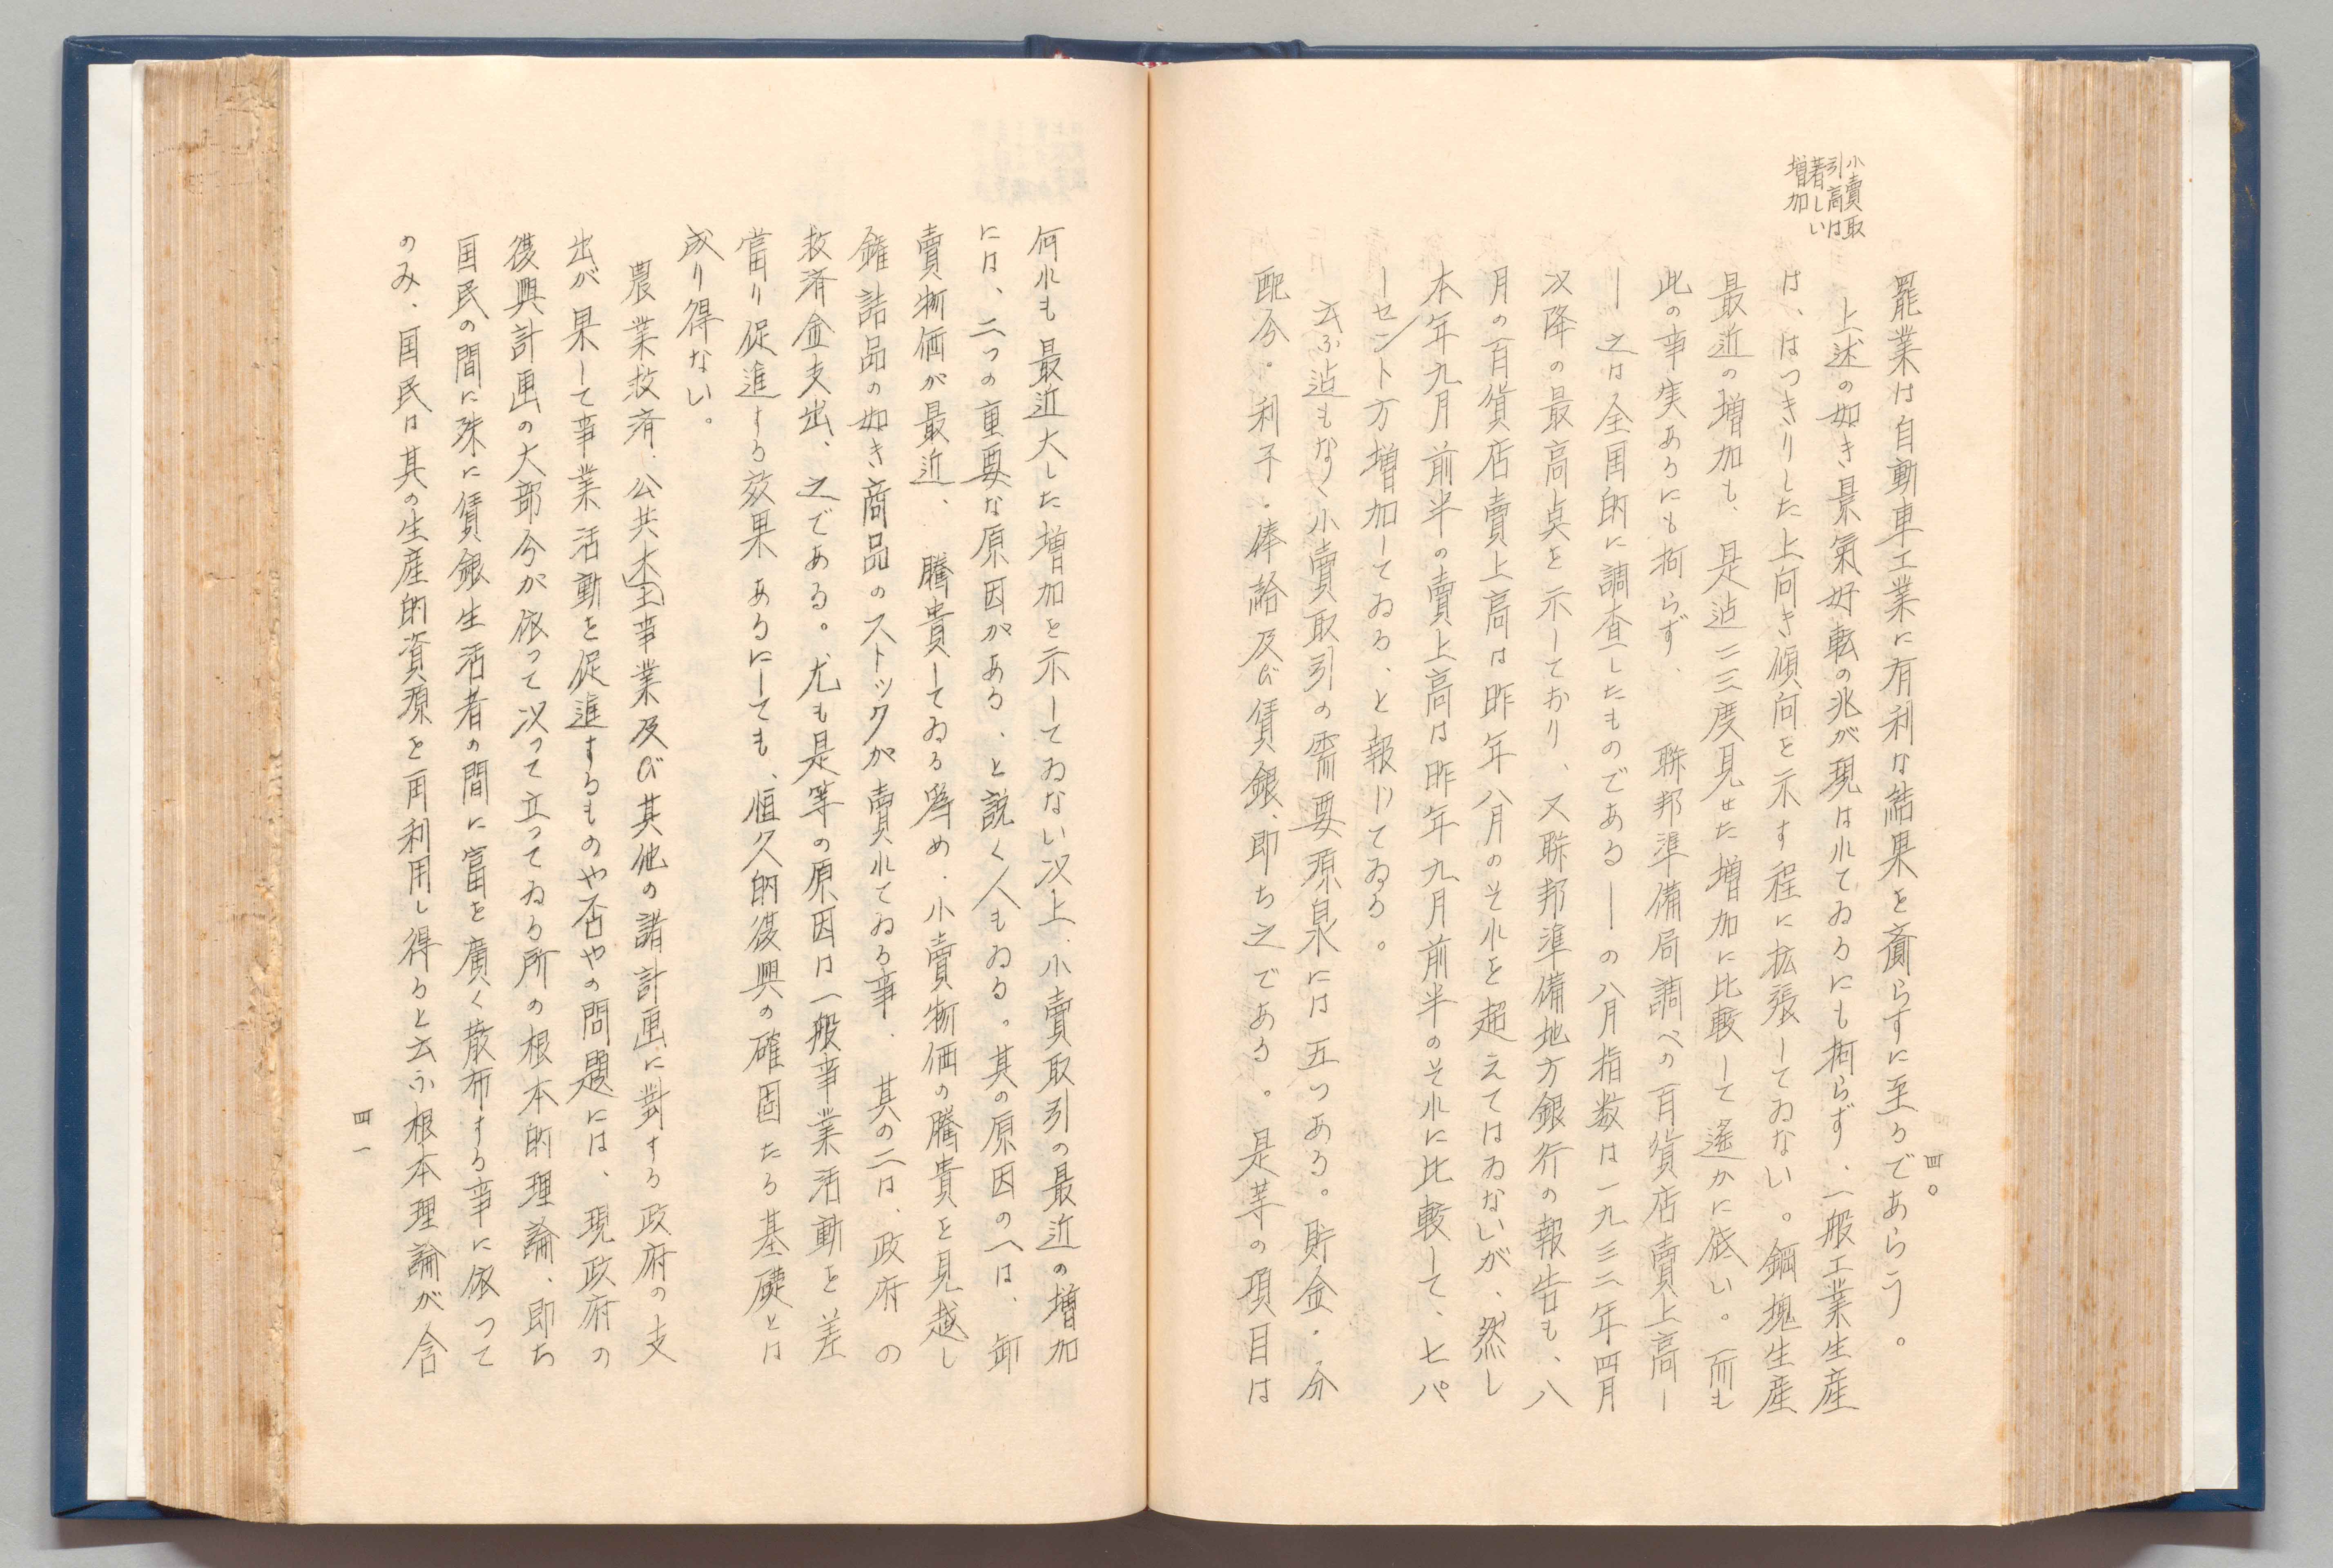 小賣取
引高は
著しい
増加
罷業は自動車工業に有利な結果を齎らすに至るであらう。
上述の如き景氣好転の兆が現はれてゐるにも拘らず、一般工業生産
は、はつきりした上向き傾向を示す程に拡張してゐない。鋼塊生産
最近の増加も、是迠二三度見せた増加に比較して遙かに底い。而も
此の事実あるにも拘らず、聨邦準備局調べの百貨店賣上高ー
ー之は全国的に調査したものである──の八月指数は一九三二年四月
以降の最高点を示しており、又聨邦準備地方銀行の報告も、八
月の百貨店賣上高は昨年八月のそれを超えてはゐないが、然し
本年九月前半の賣上高は昨年九月前半のそれに比較して、七パ
ーセント方増加してゐる、と報じてゐる。
云ふ迠もなく小賣取引の需要源泉には五つある。貯金・分
配分・利子・俸給及び賃銀、即ち之である。是等の項目は
四〇
何れも最近大した増加を示してゐない以上、小賣取引の最近の増加
には、二つの重要な原因がある、と説く人もゐる。其の原因の一は、卸
賣物価が最近、騰貴してゐる為め、小賣物価の騰貴を見越し
罐詰品の如き商品のストックが賣れてゐる事、其の二は、政府の
救済金支出、之である。尤も是等の原因は一般事業活動を差
當り促進する效果あるにしても、恒久的復興の確固たる基礎とは
成り得ない。
農業救済、公共土木事業及び其他の諸計画に對する政府の支
出が果して事業活動を促進するものや否やの問題には、現政府の
復興計画の大部分が依って以って立ってゐる所の根本的理論、即ち
国民の間に殊に賃銀生活者の間に富を廣く散布する事に依って
のみ、国民は其の生産的資源を再利用し得ると云ふ根本理論が含
四一